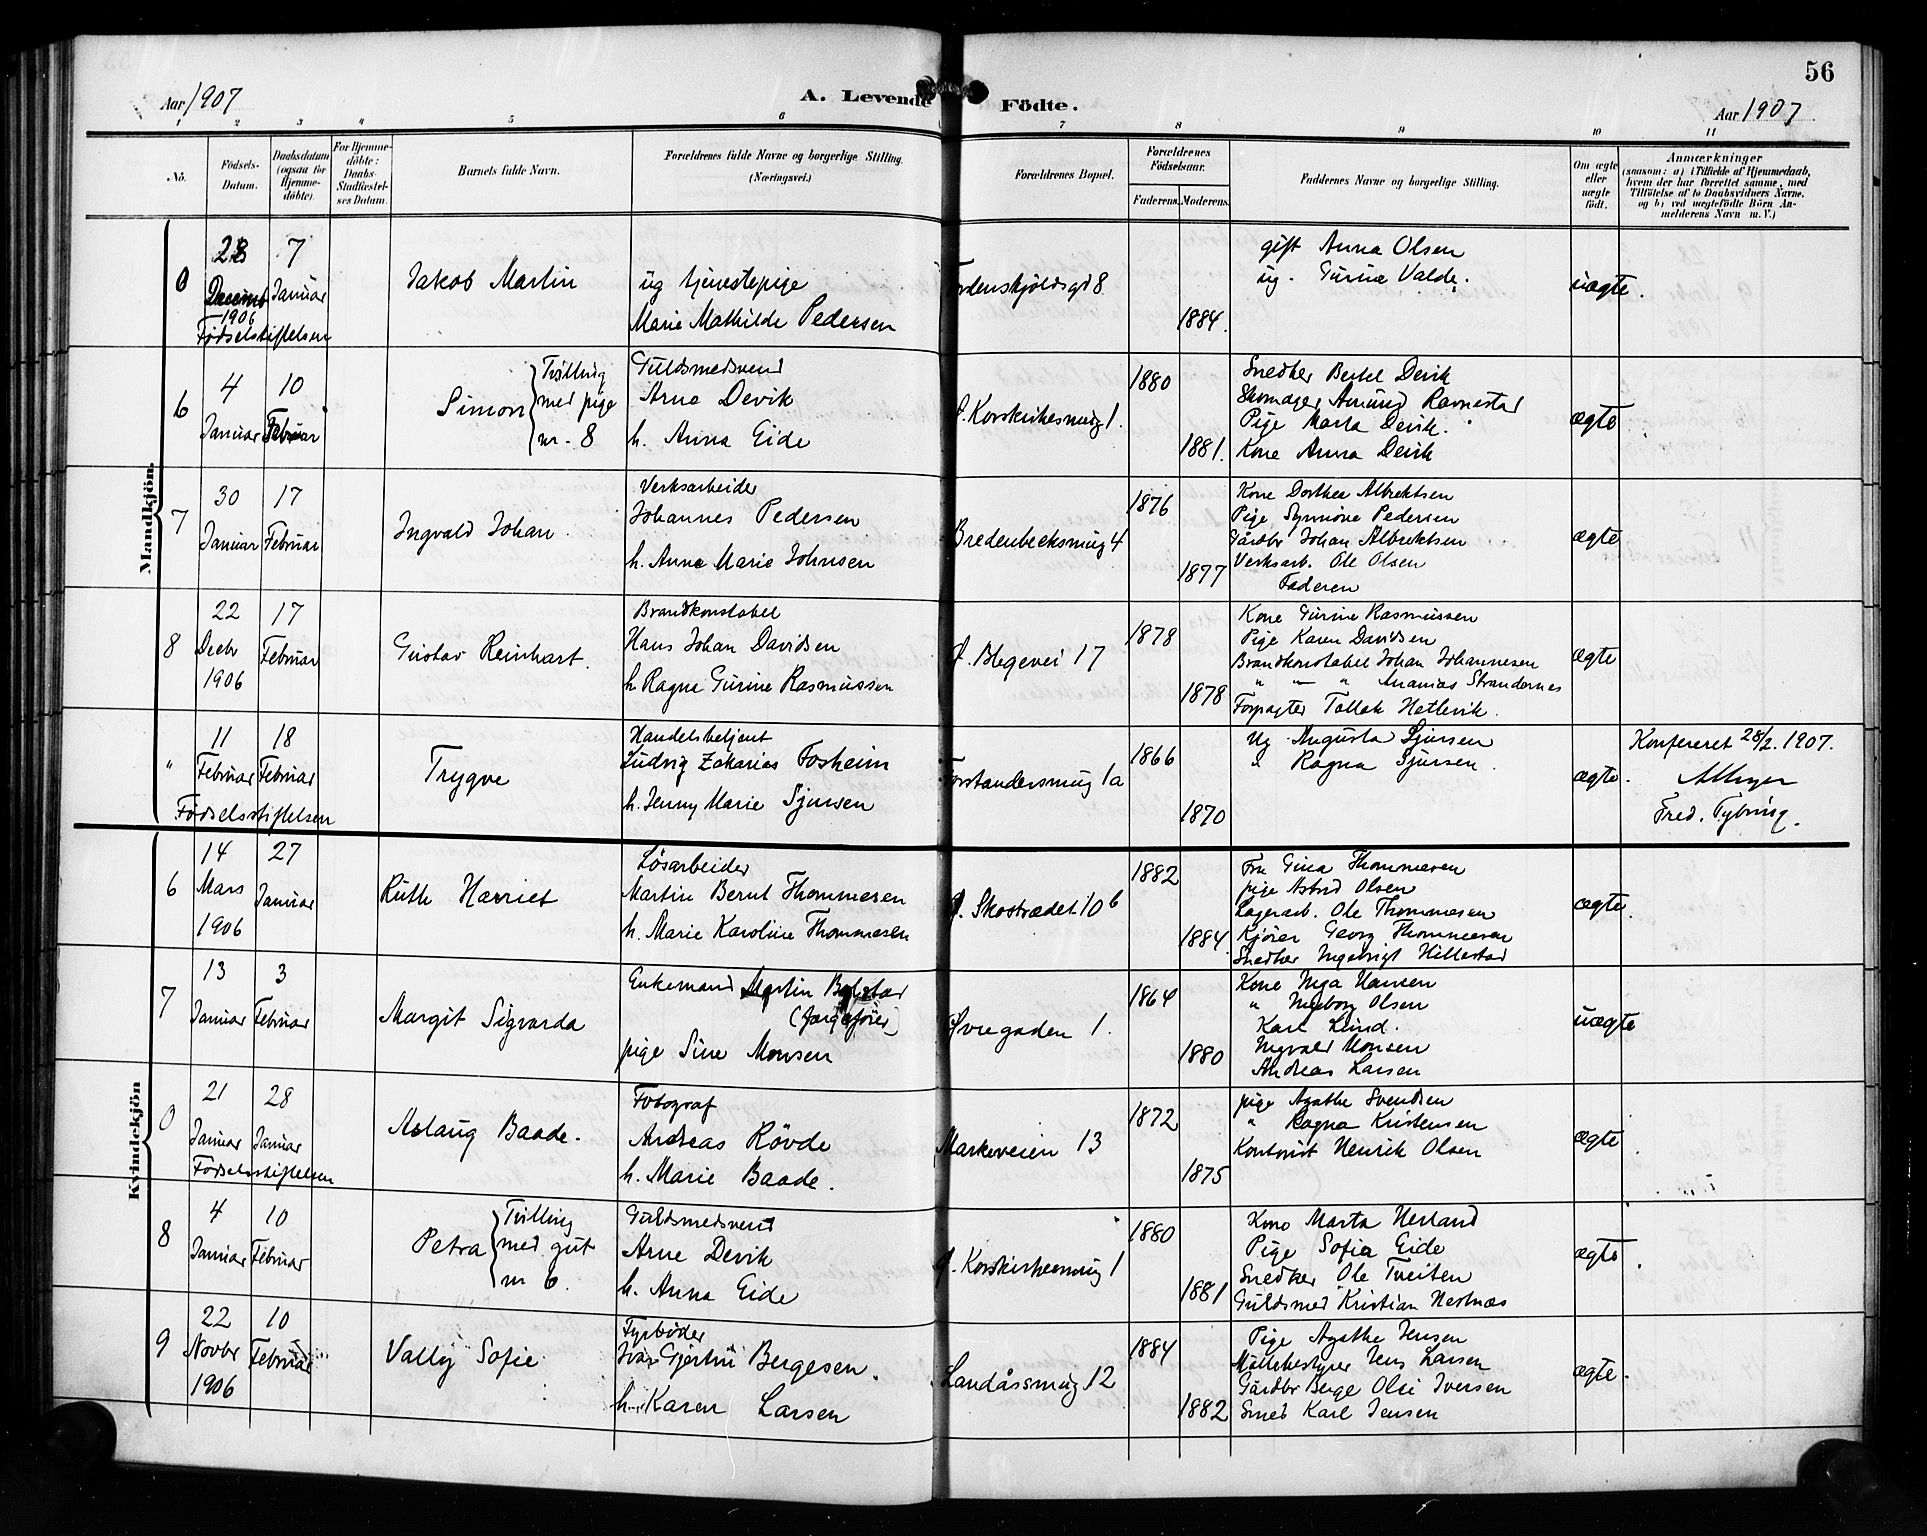 56
Aar 1907
A. Levende Födte.
Aar 1907
1 2 3 4 5 6 7 8 9 10 11
No.
Födsels-Datum.
Daabsdatum (ogsaa for Hjemme-döbte).
For Hjemme-döbte: Daabs-Stadfæstel-ses Datum.
Barnets fulde Navn.
Forældrenes fulde Navne og borgerlige Stilling. (Næringsvei.)
Forældrenes Bopæl.
Forældrenes Födselsaar.
Faderens. Moderens.
Faddernes Navne og borgerlige Stilling.
Om ægte eller uægte födt.
Anmærkninger
(saasom: a) i Tilfælde af Hjemmedaab,
hvem der har forrettet samme, med
Tilföielse af to Daabsvidners Navne.
og b) ved uægtefödte Börn An-
melderens Navn m. V.)
Mandkjön.
0
28 Decemb 1906
7 Januar
Fødselsstiftelsen
Jakob Martin
ug tjenestepige
Marie Mathilde Pedersen
Tordenskjoldsgd 8
1884.
gift Anna Olsen
ug. Gurine Valde.
uægte.
6
4 Januar
10 Februar
Simon
Tvilling
med pige
nr. 8
Guldsmedsvend
Arne Devik
h. Anna Eide
Ø. Korskirkesmug 1.
1880
1881.
Snedker Bertel Devik
Skomager Amund Ravnestad
Pige Marta Devik.
Kone Anna Devik
ægte
7
30 Januar
17 Februar
Ingvald Johan.
Verksarbeider
Johannes Pedersen
h. Anna Marie Johnsen
Bredenbecksmug 4
1876
1877
Kone Dorthea Albrektsen
Pige Synnöve Pedersen
Gårdbr Johan Albrektsen
Verksarb. Ole Olsen
Faderen
ægte
8
22 Decbr 1906
17 Februar
Gustav Reinhart.
Brandkonstabel
Hans Johan Davidsen
h Ragna Gurine Rasmussen
Ø. Blegevei 17
1878
1878
Kone Gurine Rasmussen
Pige Karen Davidsen
Brandkonstabel Johan Johannesen
" " " Ananias Strandernes
Forpagter Tollak Hetlevik.
ægte
"
11 Februar
18 Februar
Fødselsstiftelsen
Trygve
Handelsbetjent
Ludvig Zakarias Fosheim
h. Jenny Marie Sjursen
Forstandersmug 1a
1866
1870
Ug Augusta Sjursen
" Ragna Sjursen.
ægte.
Konfereret 28/2. 1907.
Fred. Tybring.
Kvindekjön
6
14 Mars 1906
27 Januar
Ruth Harriet
Løsarbeider
Martin Bernt Thommesen
h. Marie Karoline Thommesen
Ø. Skostrædet 10 b
1882
1884
Fru Gina Thommesen
pige Astrid Olsen
Lagerarb. Ole Thommesen
Kjører Georg Thommesen
Snedker Ingebrigt Hillestad
ægte.
7
13 Januar
3 Februar
Margit Sigvarda
Enkemand Martin Bolstad
pige Sine Monsen
Øvregaden 1.
1864
1880
Kone Inga Hansen
" Ingeborg Olsen
Karl Lund.
Ingvald Monsen
Andreas Larsen
uægte
0
21 Januar
28 Januar
Fødselsstiftelsen
Aslaug Baade.
Fotograf
Andreas Rövde
h. Marie Baade.
Markeveien 13
1872
1875
pige Agathe Svendsen
" Ragna Kristensen
Kontorist Henrik Olsen
ægte
8
4 Januar
10 Februar
Petra
Tvilling
med gut
nr 6.
Guldsmedsvend
Arne Devik
h. Anna Eide
Ø. Korskirkesmug 1
1880
1881
Kone Marta Herland
Pige Sofia Eide
Snedker Ole Tveiten
Guldsmed Kristian Nestnæs
ægte.
9
22 Novbr 1906
10 Februar
Vally Sofie
Fyrbøder
Ivar Gjertin Bergesen.
h. Karen Larsen
Landåssmug 12
1884
1882
Pige Agathe Jensen
Møllebestyrer Jens Larsen
Gårdbr Berge Olai Iversen
Smed Karl Jensen
ægte.